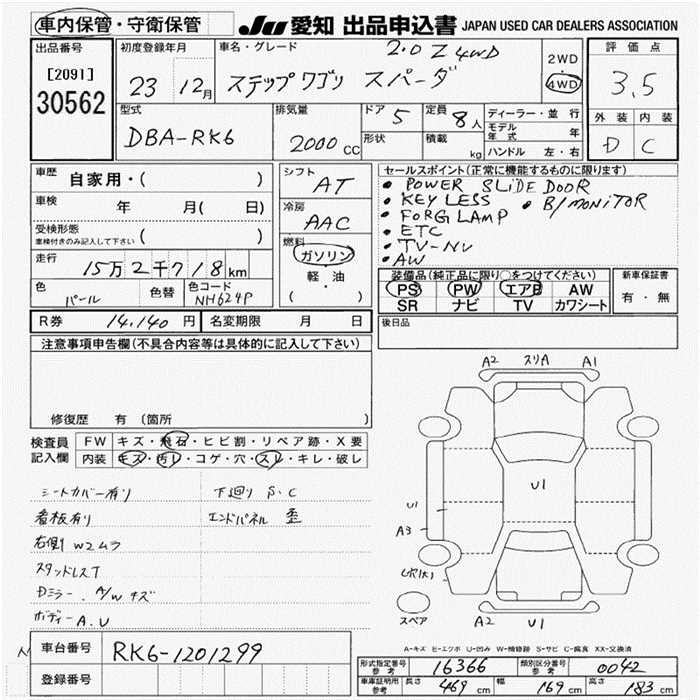 車内保管・守衛保管 JU 愛知 出品申込書 JAPAN USED CAR DEALERS ASSOCIATION
出品番号 初度登録年月 車名・グレード 2.0 Z 4WD 2WD 評価点
[2091] 23 12月 ステップワゴン スパーダ 4WD 3.5
30562
型式 排気量 ドア 5 定員 8人 ディーラー・並行 外装 内装
DBA-RK6 2000 CC 形状 積載 kg モデル年式 年 D C
ハンドル 左・右
車歴 自家用・( )
シフト AT
セールスポイント(正常に機能するものに限ります)
車検 年 月( 日)
冷房 AAC
・POWER SLiDE DOOR
・KEY LESS ・B/MONiTOR
・FORG LAMP
受検形態 ( )
車検付きのみ記入して下さい
・ETC
・TV-NV
・AW
走行 15万2千718km
燃料 ガソリン
軽・油
( )
色 パール 色替 色コード NH624P
装備品(純正品に限り○をつけてください) 新車保証書
PS PW エアB AW 有・無
SR ナビ TV カワシート
R券 14,140円 名変期限 月 日
後日品
注意事項申告欄(不具合内容等は具体的に記入して下さい)
修復歴 有 (箇所 )
検査員記入欄 FW キズ・飛石・ヒビ割・リペア跡・X要
内装 キズ・汚レ・コゲ・穴・スレ・キレ・破レ
シートカバー有り 下廻り S.C
看板有り エンドパネル 歪
右側 W2ムラ
スタッドレスT
Dミラー. A/W キズ
ボディー A.U
A2 スリA A1
U1
U1
A3
スペア
A2 U1
A-キズ E-エクボ U-凹み W-補修跡 S-サビ C-腐食 XX-交換済
車台番号 RK6-1201299
登録番号
形式指定番号 参考 16366 類別区分番号 参考 0042
車庫証明用 参考 長さ 469cm 幅 169cm 高さ 183cm